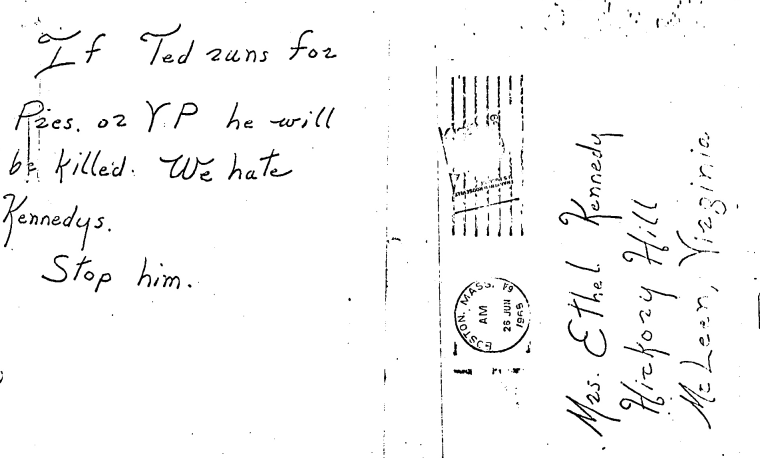 If Ted runs for
Pres. or VP he will
be killed. We hate
Kennedys.
Stop him.
BOSTON, MASS.
AM
26 JUN
1968
Mrs. Ethel Kennedy
Hickory Hill
McLean, Virginia